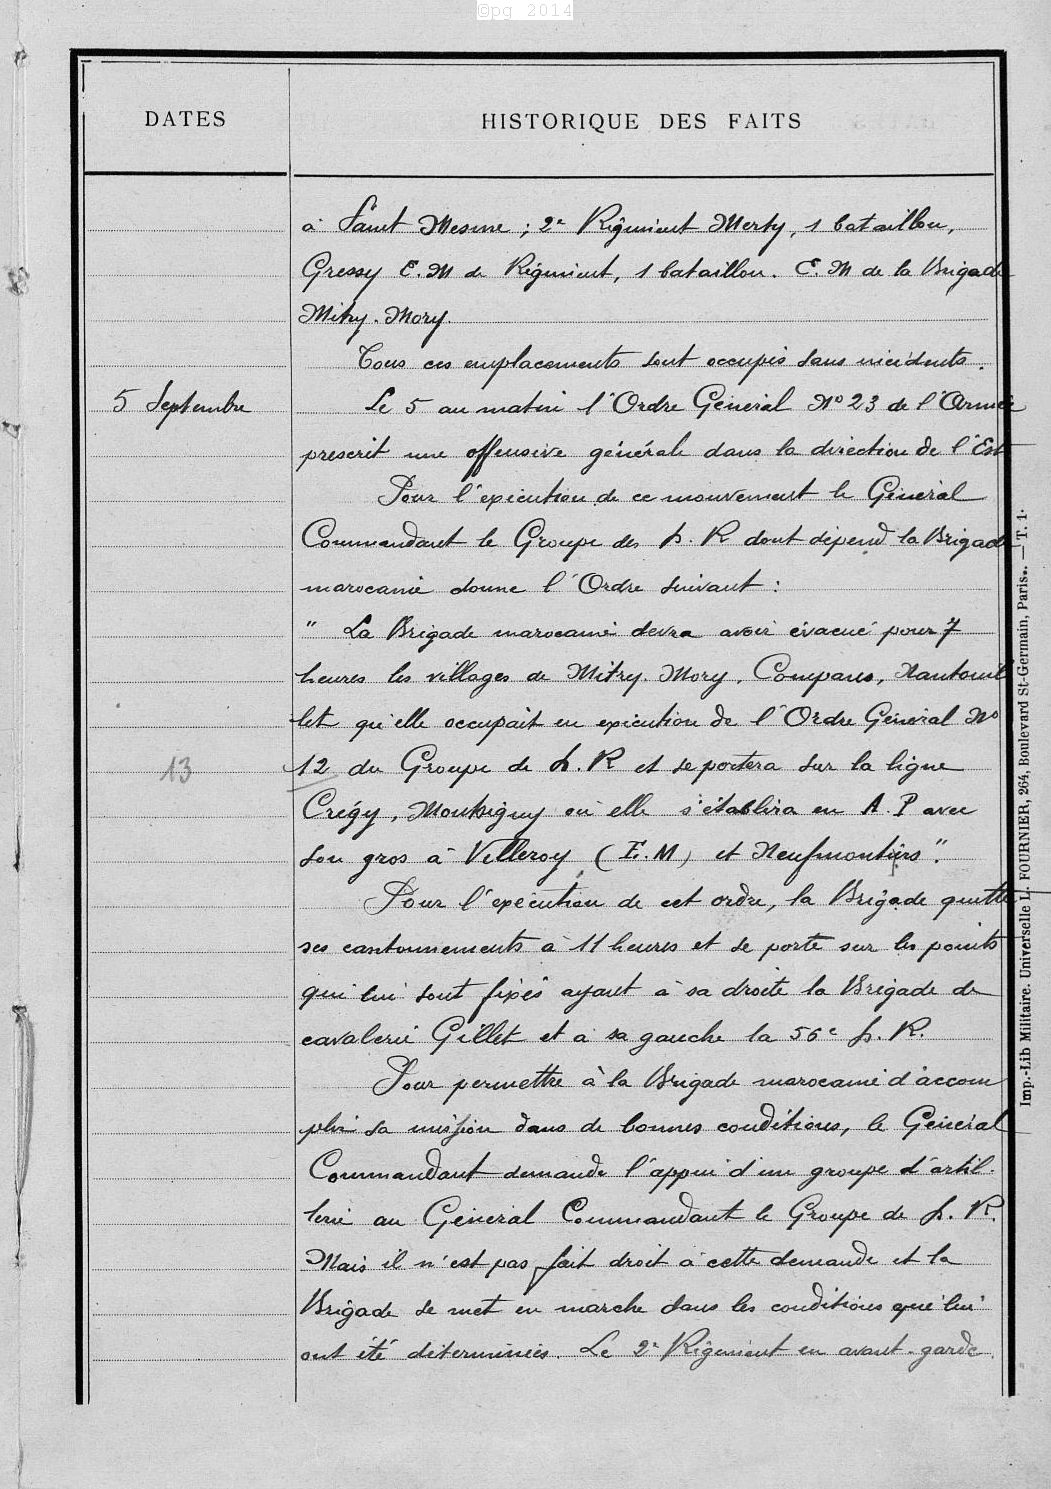 ©pg 2014
DATES
HISTORIQUE DES FAITS
à Saint Mesme ; 2e Régiment Merty, 1 bataillon,
Gressy E. M de Régiment, 1 bataillon. E. M de la Brigade
Mitry. Mory.
Tous ces emplacements sont occupés sans incidents.
5 Septembre
Le 5 au matin l'Ordre Général No 23 de l'Armée
prescrit une offensive générale dans la direction de l'Est
Pour l'exécution de ce mouvement le Général
Commandant le Groupe des D. R dont dépend la Brigade
marocaine donne l'Ordre suivant :
" La Brigade marocaine devra avoir évacué pour 7
heures les villages de Mitry. Mory, Compans, Nantouil
let qu'elle occupait en exécution de l'Ordre Général No
13
12 du Groupe de D. R et se portera sur la ligne
Crégy, Montsigny où elle s'établira en A. P avec
son gros à Villeroy (E. M) et Neufmontiers ".
Pour l'exécution de cet ordre, la Brigade quitte
ses cantonnements à 11 heures et se porte sur les points
qui lui sont fixés ayant à sa droite la Brigade de
cavalerie Gillet et à sa gauche la 56e D. R.
Pour permettre à la Brigade marocaine d'accom
plir sa mission dans de bonnes conditions, le Général
Commandant demande l'appui d'un groupe d'artil-
lerie au Général Commandant le Groupe de D. R.
Mais il n'est pas fait droit à cette demande et la
Brigade se met en marche dans les conditions qui lui
ont été déterminées. Le 2e Régiment en avant-garde
Imp.-Lib Militaire. Universelle L. FOURNIER, 264, Boulevard St-Germain, Paris. — T. 1.